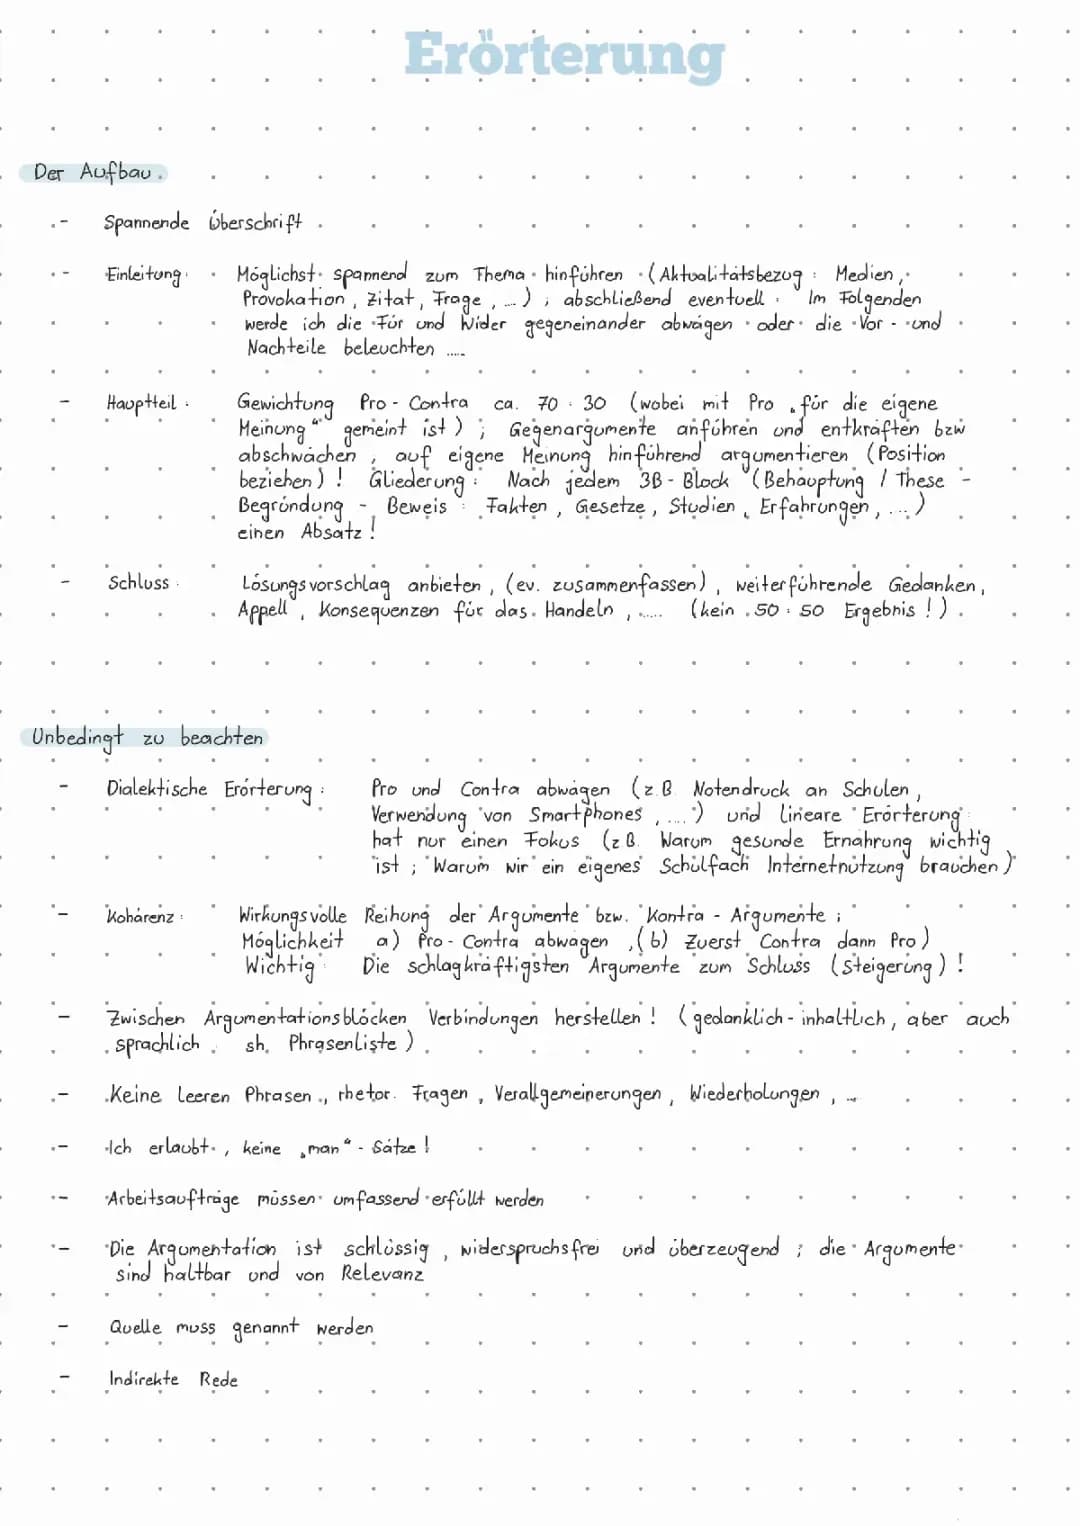 Erörterung
Der Aufbau
- Spannende Überschrift
- Einleitung: Möglichst spannend zum Thema hinführen (Aktualitätsbezug: Medien,
Provokation, Zitat, Frage, ...); abschließend eventuell: Im Folgenden
werde ich die Für und Wider gegeneinander abwägen oder die Vor- und
Nachteile beleuchten .....
- Hauptteil: Gewichtung Pro-Contra ca. 70:30 (wobei mit Pro „für die eigene
Meinung“ gemeint ist); Gegenargumente anführen und entkräften bzw
abschwächen, auf eigene Meinung hinführend argumentieren (Position
beziehen)! Gliederung: Nach jedem 3B-Block (Behauptung / These -
Begründung - Beweis: Fakten, Gesetze, Studien, Erfahrungen, ...)
einen Absatz!
- Schluss: Lösungsvorschlag anbieten, (ev. zusammenfassen), weiterführende Gedanken,
Appell, Konsequenzen für das Handeln, ..... (kein 50:50 Ergebnis!).
Unbedingt zu beachten
- Dialektische Erörterung: Pro und Contra abwägen (z.B. Notendruck an Schulen,
Verwendung von Smartphones, ....) und lineare Erörterung:
hat nur einen Fokus (z.B. Warum gesunde Ernährung wichtig
ist; Warum wir ein eigenes Schulfach Internetnutzung brauchen)
- Kohärenz: Wirkungsvolle Reihung der Argumente bzw. Kontra-Argumente;
Möglichkeit a) Pro-Contra abwägen, (b) Zuerst Contra dann Pro)
Wichtig: Die schlagkräftigsten Argumente zum Schluss (Steigerung)!
- Zwischen Argumentationsblöcken Verbindungen herstellen! (gedanklich-inhaltlich, aber auch
sprachlich. sh. Phrasenliste).
- Keine leeren Phrasen, rhetor. Fragen, Verallgemeinerungen, Wiederholungen, ...
- Ich erlaubt, keine „man“-Sätze!
- Arbeitsaufträge müssen umfassend erfüllt werden
- Die Argumentation ist schlüssig, widerspruchsfrei und überzeugend; die Argumente
sind haltbar und von Relevanz
- Quelle muss genannt werden
- Indirekte Rede